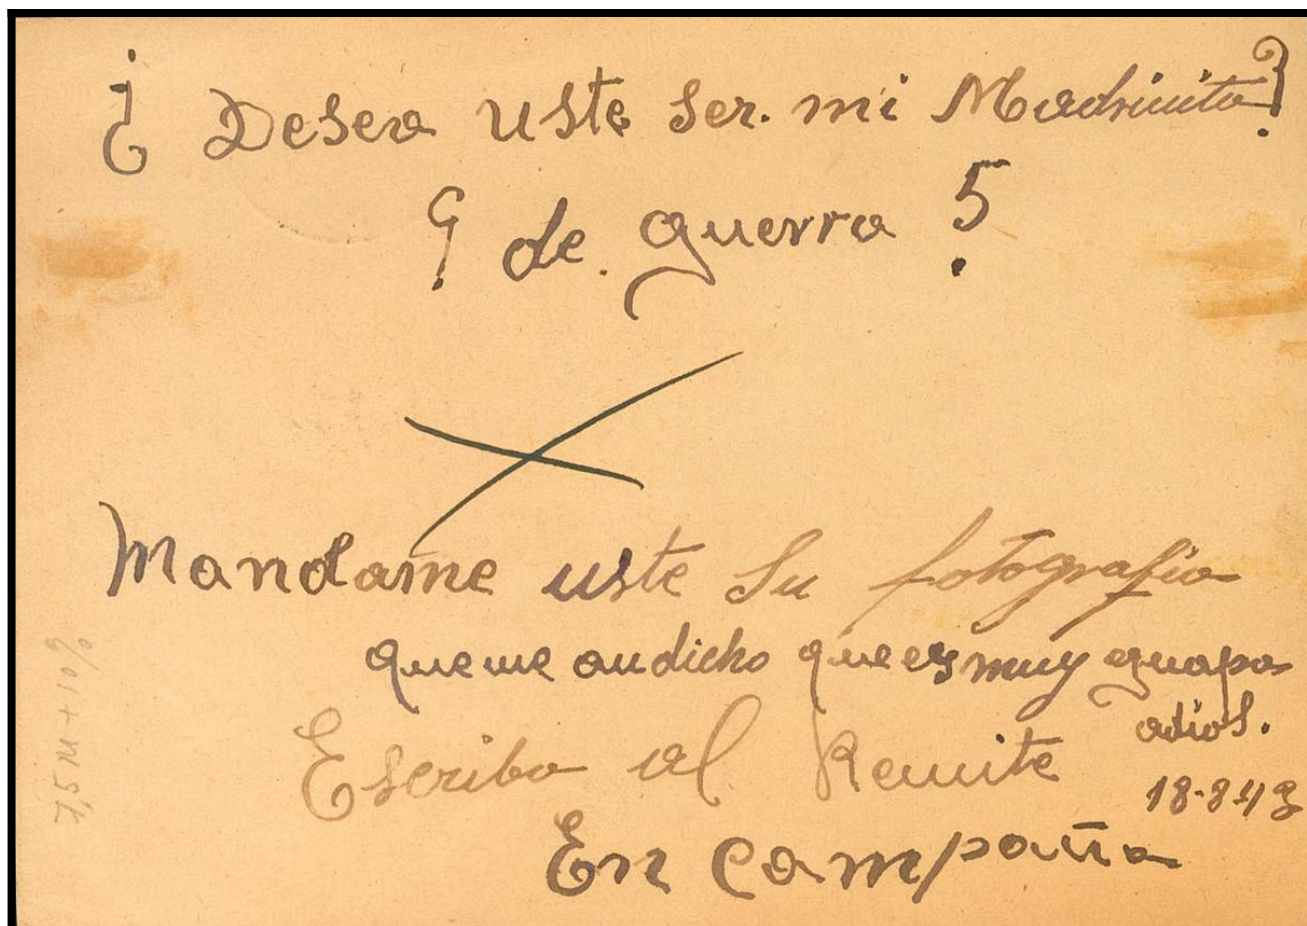 ¿Desea uste ser. mi Madrinita?
¿ de. guerra ?
Mandame uste su fotografia
queme andicho que es muy guapa
adios.
Escriba al Remite
18-8-43
En Campaña
7,5 M + 10%